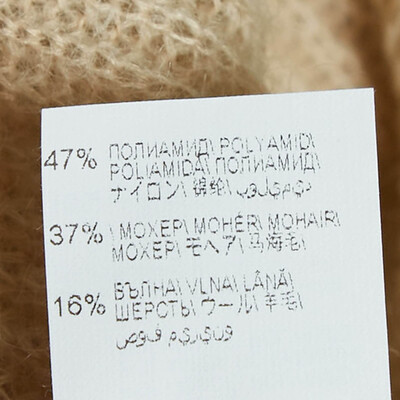 47% ПОЛИАМИД\ POLYAMID\
POLIAMIDA\ ПОЛИАМИД\
ナイロン\ 锦纶\
37% \ МОХЕР\ MOHER\ MOHAIR\
МОХЕР\ モヘア\ 马海毛\
16% ВЪЛНА\ VLNA\ LÂNĂ\
ШЕРСТЬ\ ウール\ 羊毛\